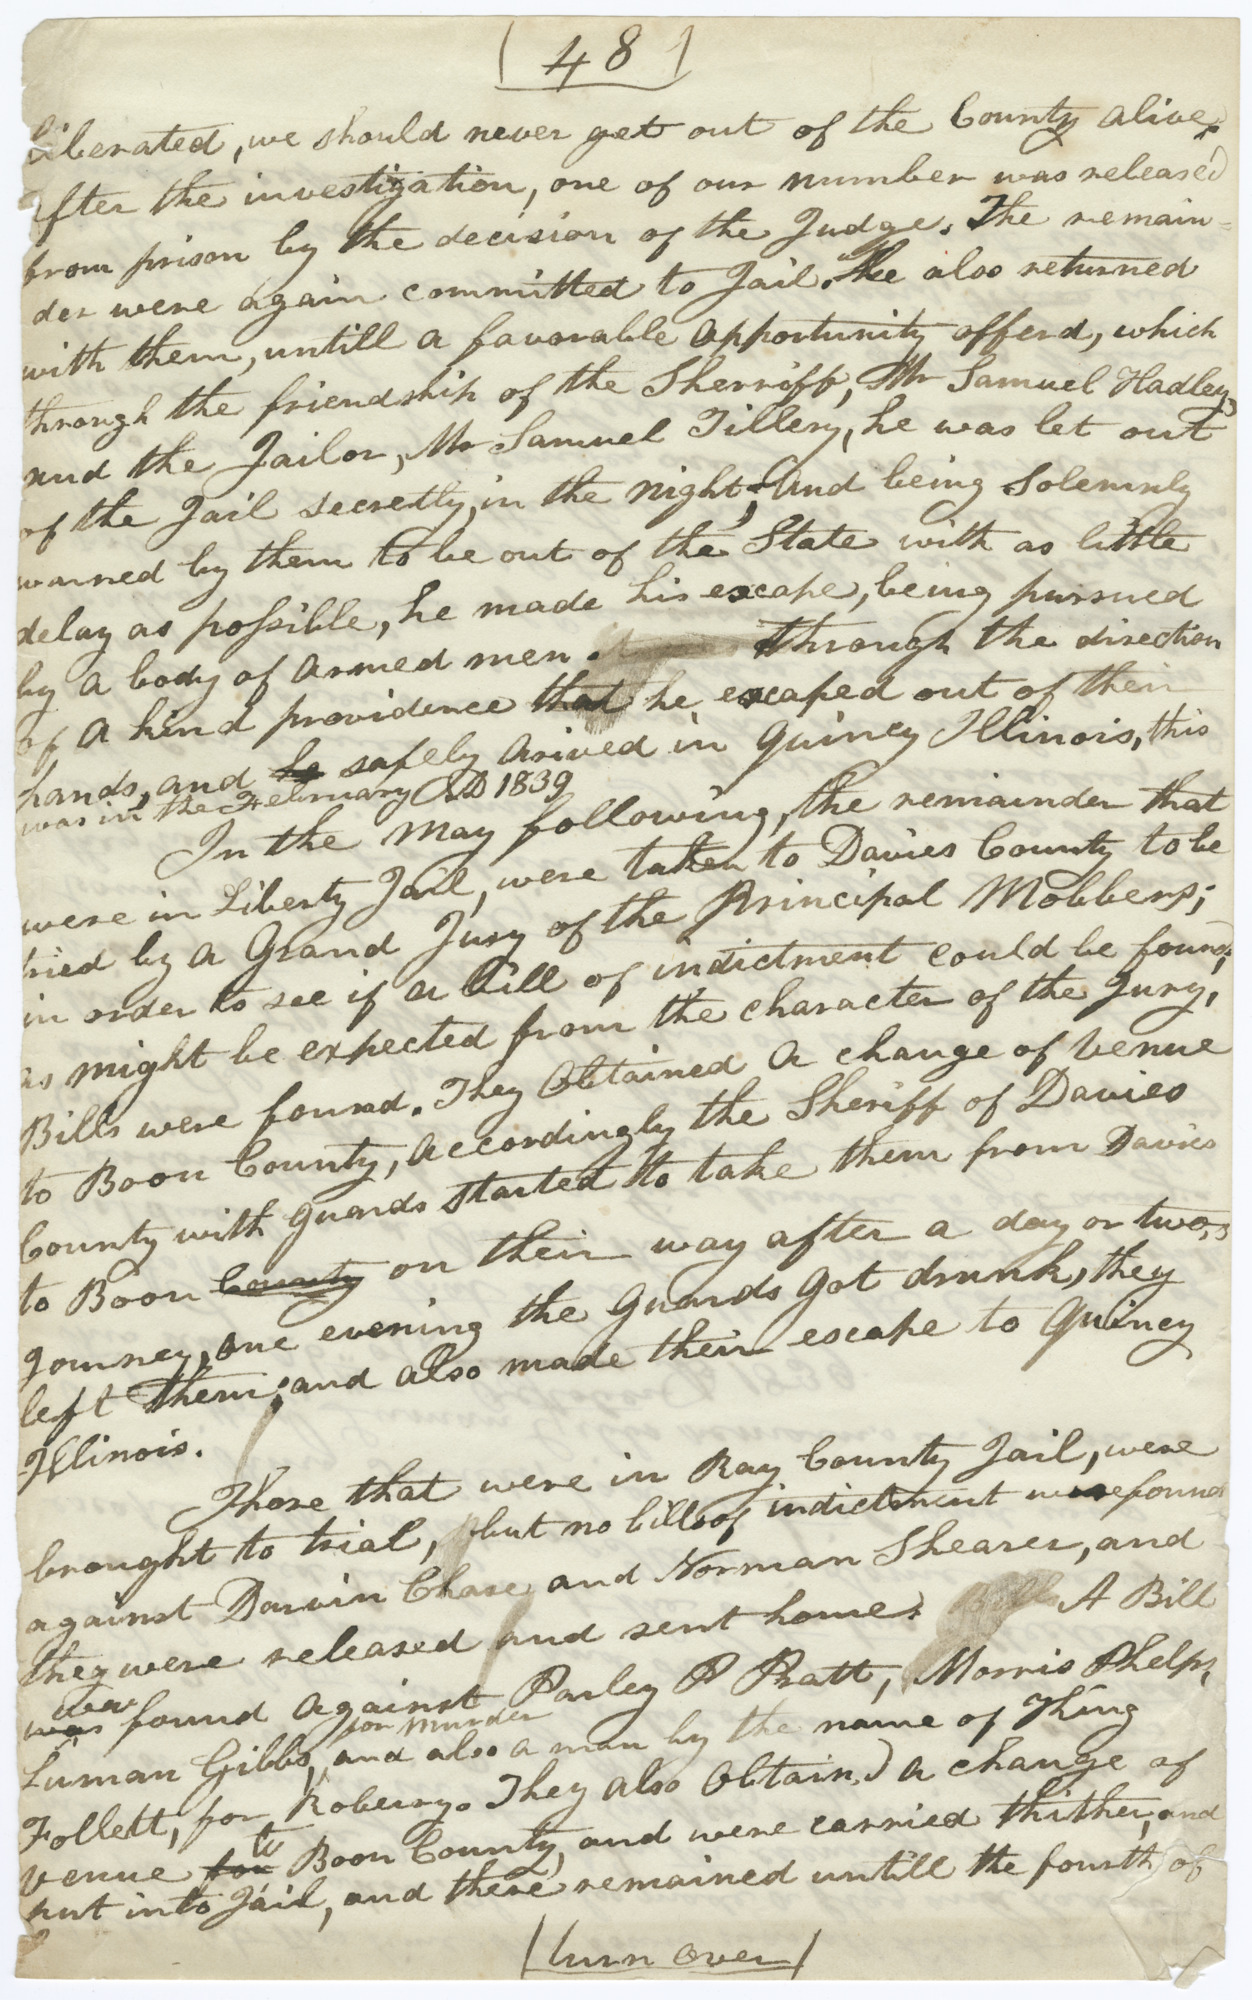 (48)
liberated, we should never get out of the County alive.
After the investigation, one of our number was released
from prison by the decision of the Judge. The remain-
der were again committed to Jail. He also returned
with them, untill a favorable opportunity offerd, which
through the friendship of the Sherriff, Mr Samuel Hadley,
and the Jailor, Mr Samuel Tillery, he was let out
of the Jail secretly, in the night, And being solemnly
warned by them to be out of the State with as little
delay as possible, he made his escape, being pursued
by a body of armed men. through the direction
of a kind providence that he escaped out of their
hands, and he safely arived in Quincy Illinois, this
was in the February AD 1839
In the May following, the remainder that
were in Liberty Jail, were taken to Davies County to be
tried by a Grand Jury of the Principal Mobbers;
in order to see if a Bill of indictment could be found,
as might be expected from the character of the Jury,
Bills were found. They Obtained a change of Venue
to Boon County, accordingly the Sheriff of Davies
County with guards started to take them from Davies
to Boon County on their way after a day or two,s
journey, one evening the Guards got drunk, they
left them; and also made their escape to Quincy
Illinois.
Those that were in Ray County Jail, were
brought to trial, but no bills of indictment were found
against Darwin Chase and Norman Shearer, and
they were released and sent home. Bill A Bill
was
was found against Parley P Pratt, Morris Phelps,
for murder
Luman Gibbs, and also a man by the name of King
Follett, for Robery. They also Obtaind a change of
to
venue for Boon County, and were carried thither, and
put into Jail, and there remained untill the fourth of
(turn over)